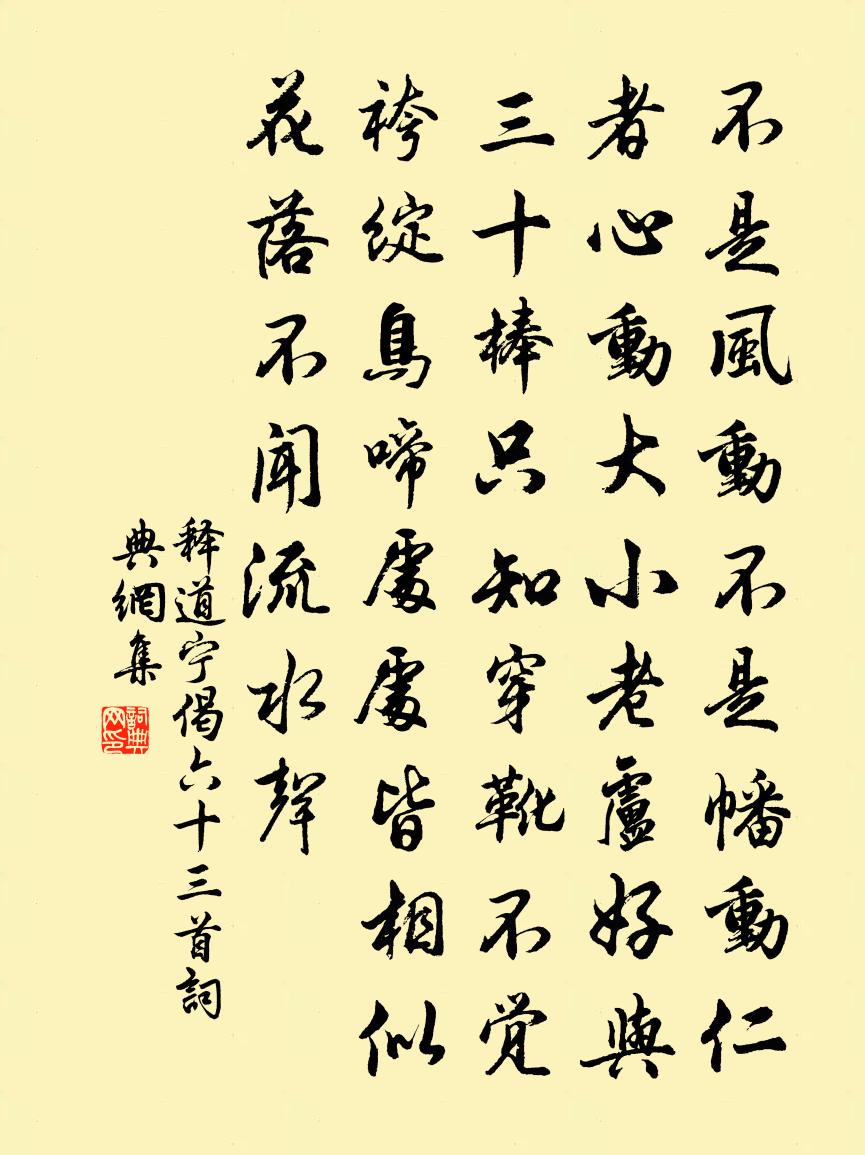 不是風動不是幡動仁
者心動大小老盧好與
三十棒只知穿靴不觉
袴綻鳥啼處處皆相似
花落不聞流水聲
释道宁偈六十三首詞
典網集
詞典网印